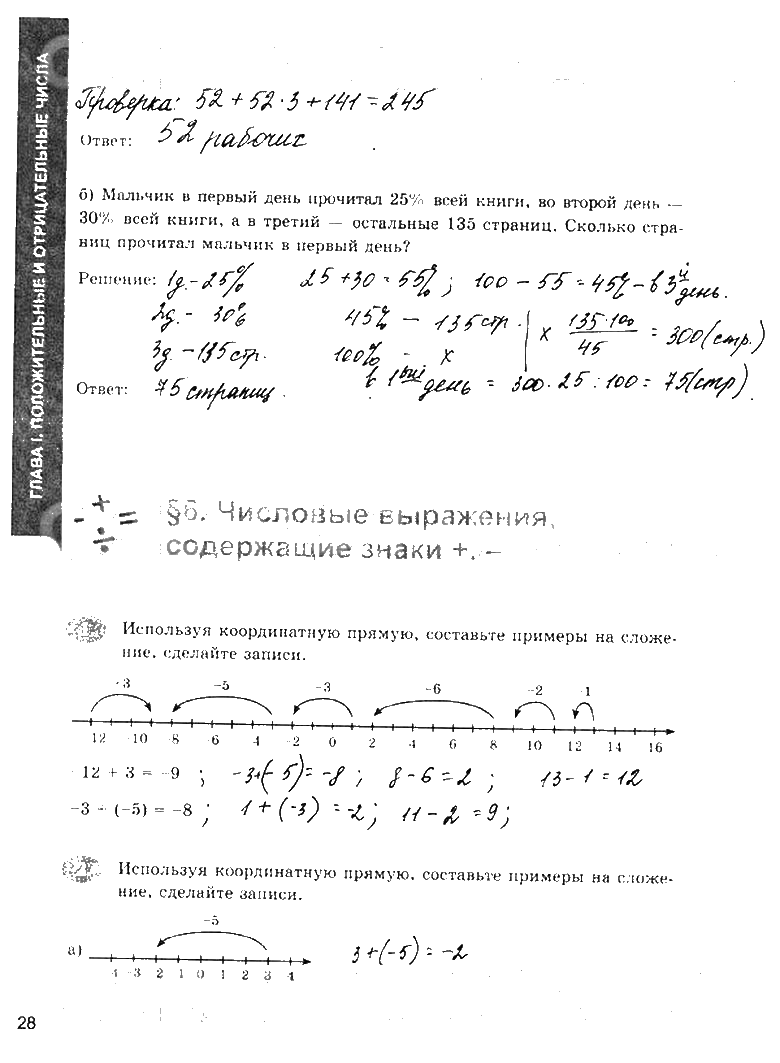 ГЛАВА I. ПОЛОЖИТЕЛЬНЫЕ И ОТРИЦАТЕЛЬНЫЕ ЧИСЛА
Проверка: 52 + 52 · 3 + 141 = 245
Ответ: 52 рабочих
б) Мальчик в первый день прочитал 25% всей книги, во второй день —
30% всей книги, а в третий — остальные 135 страниц. Сколько стра-
ниц прочитал мальчик в первый день?
Решение: 1д. - 25% 25 + 30 = 55%; 100 - 55 = 45% - в 3й день.
2д. - 30% 45% - 135 стр. | x 135·100/45 = 300 (стр.)
3д - 135 стр. 100% - x
Ответ: 75 страниц. в 1ый день = 300 · 25 : 100 = 75 (стр)
- + ÷ = §6. Числовые выражения,
содержащие знаки +, –
Используя координатную прямую, составьте примеры на сложе-
ние, сделайте записи.
-3 -5 -3 -6 -2 1
12 10 8 6 4 -2 0 2 4 6 8 10 12 14 16
12 + 3 = -9 ; -3+(-5) = -8 ; 8 - 6 = 2 ; 13 - 1 = 12
-3 + (-5) = -8 ; 1 + (-3) = -2 ; 11 - 2 = 9 ;
Используя координатную прямую, составьте примеры на сложе-
ние, сделайте записи.
-5
а) 3+(-5) = -2
4 -3 2 1 0 1 2 3 4
28